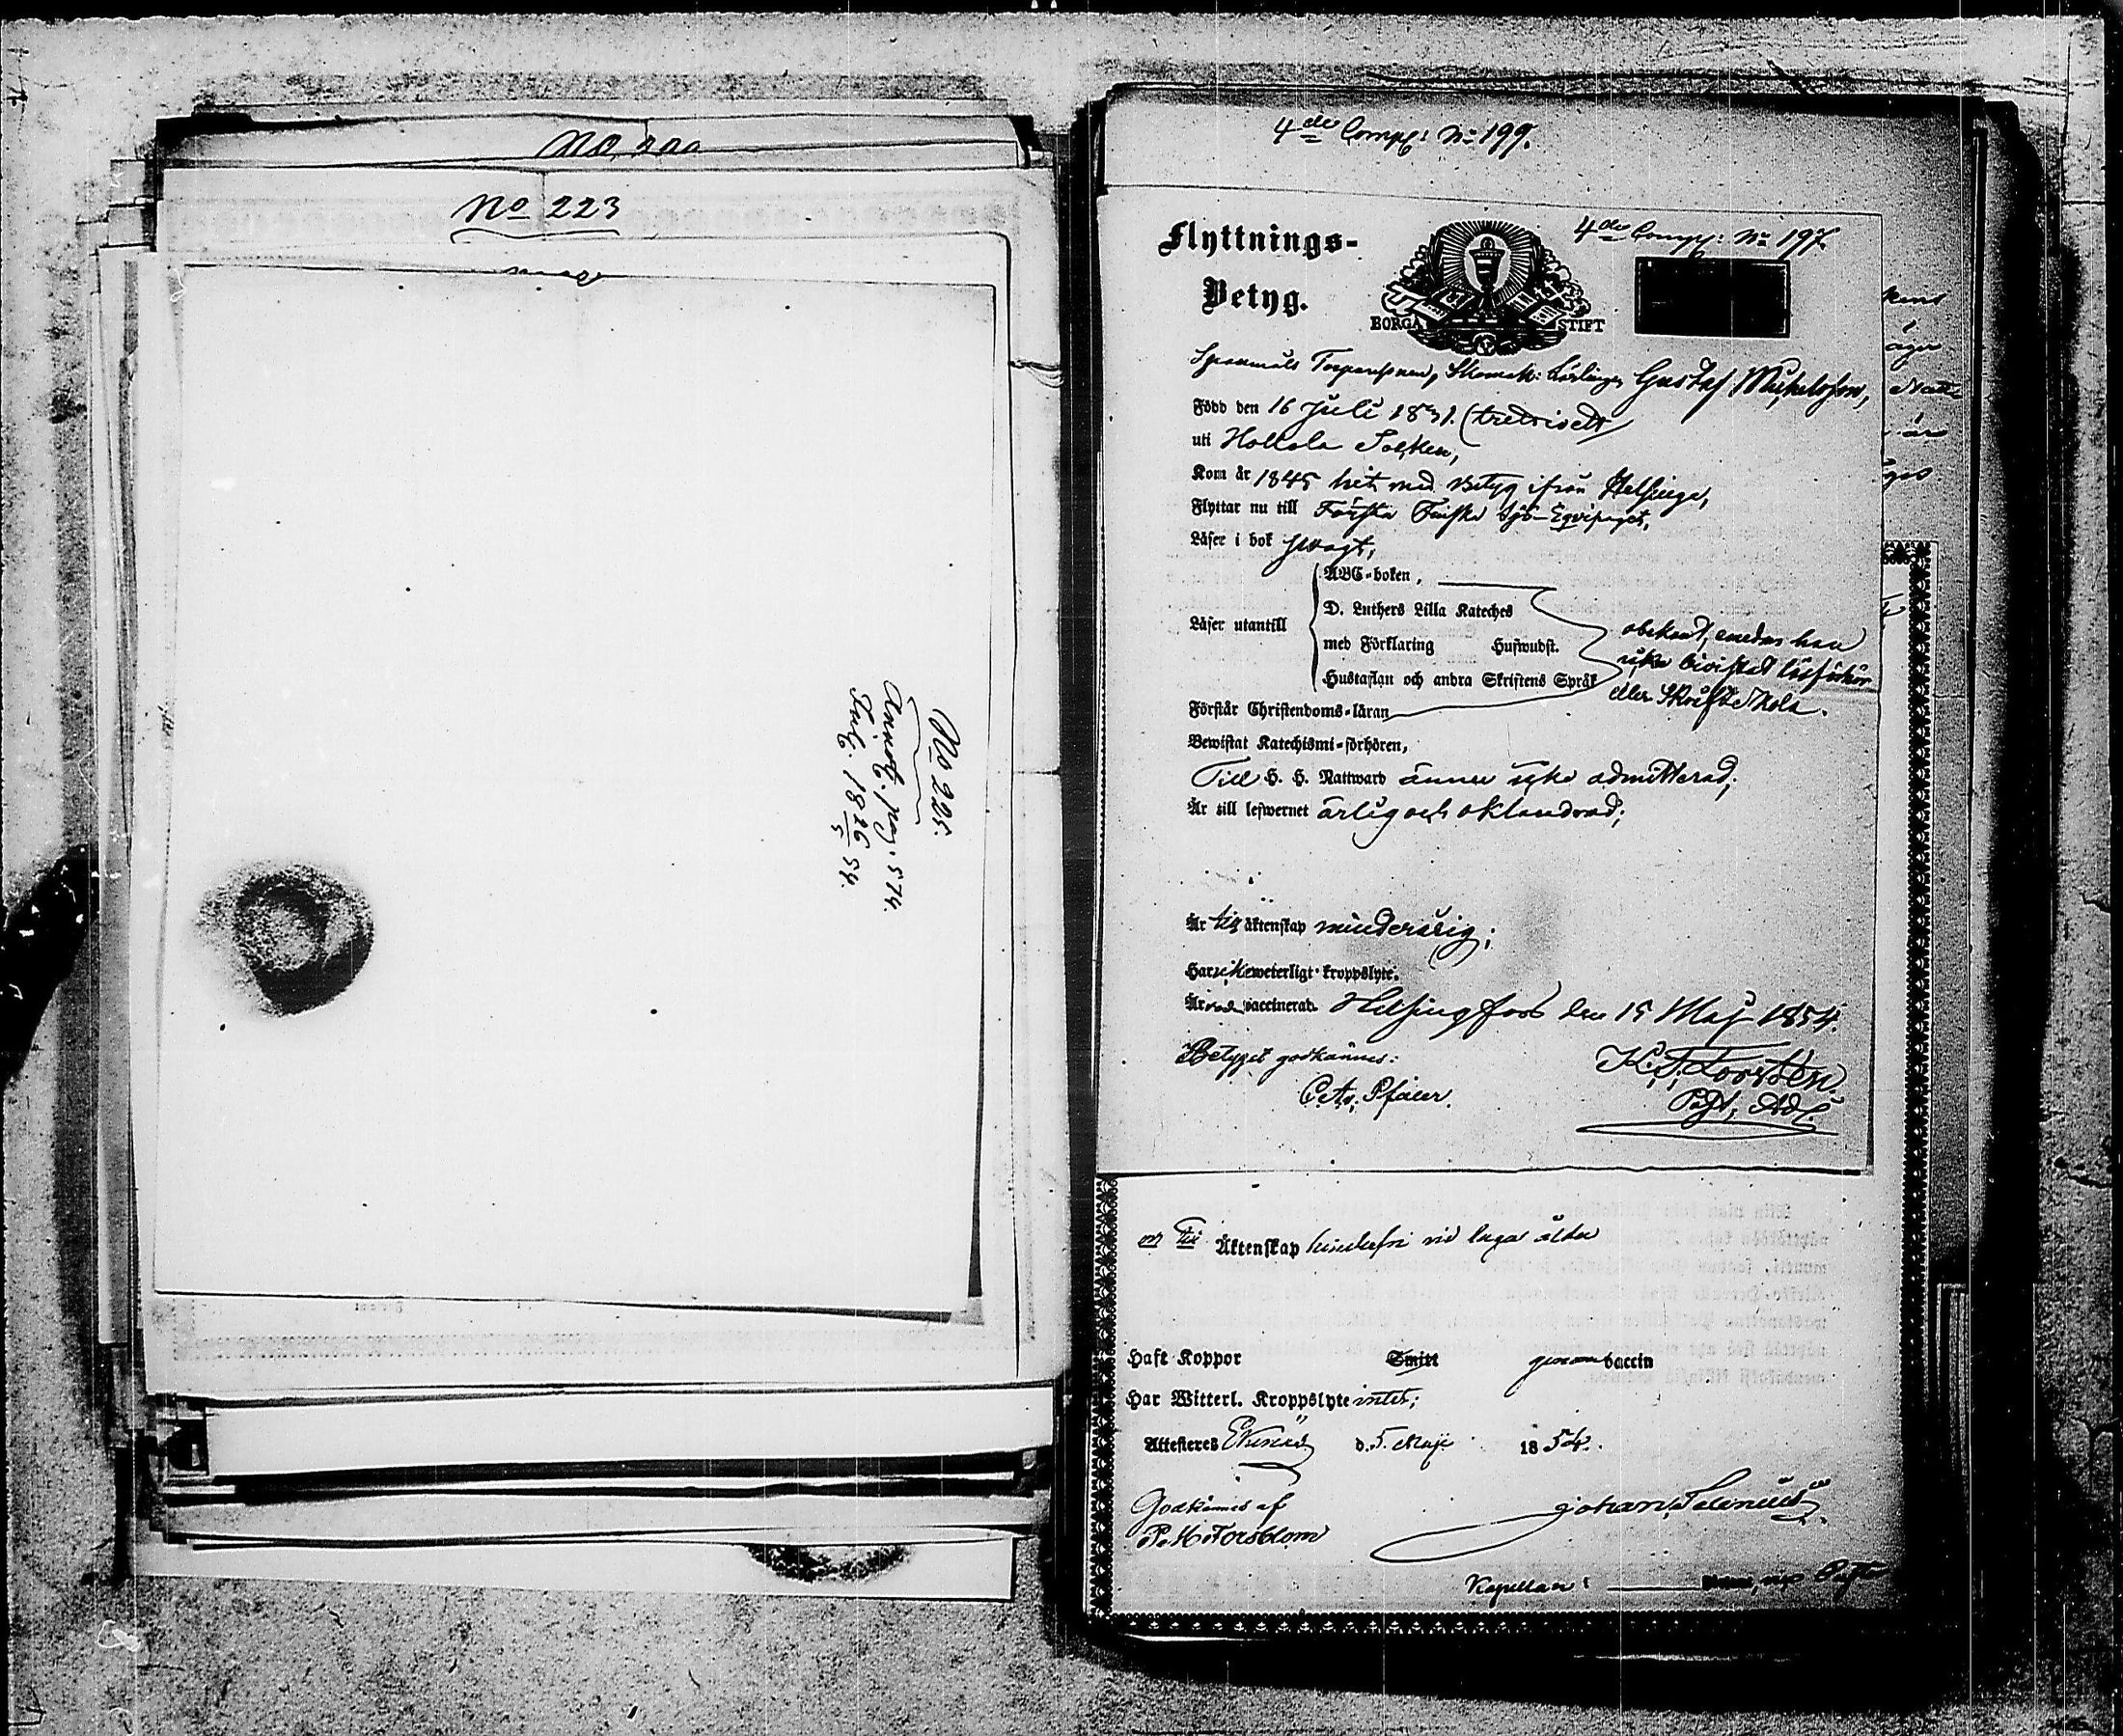 No 223
No 225.
Annot. pag. 574.
Inl. 18 26/5 54.
4de Comp: No 199.
Flyttnings-
Betyg.
BORGÅ STIFT
4de Comp: No 197.
Gustaf Michelsson,
Född den 16 Juli 1831. (trettioett)
uti Hollola Socken,
Kom år 1845 hit med Betyg ifrån Helsinge,
Flyttar nu till Första Finska Sjö-Equipaget,
Läser i bok svagt,
ABC-boken,
D. Luthers Lilla Kateches
Läser utantill
med Förklaring Huswudst.
Hustaflan och andra Skriftens Språk
obekant, emedan han
icke bivistat läsförhör
eller Skriftskola.
Förstår Christendoms-läran
Bewistat Katechismi-förhören,
Till H. H. Nattward ännu icke admitterad;
Är till lefwernet ärlig och oklandrad;
Är till äktenskap minderårig;
Har icke weterligt kroppslyte.
Är vaccinerad. Helsingfors den 15 Maj 1854.
Betyget godkännes:
Past. Adj.
Till Äktenskap hinderfri vid laga ålder
Haft Koppor Smitt genom vaccin
Har Witterl. Kroppslyte intet;
Attesteras Ekenäs d. 5. Maji 1854.
Godkännes af
Johan Selenius
P. M. Forsblom
Kapellan